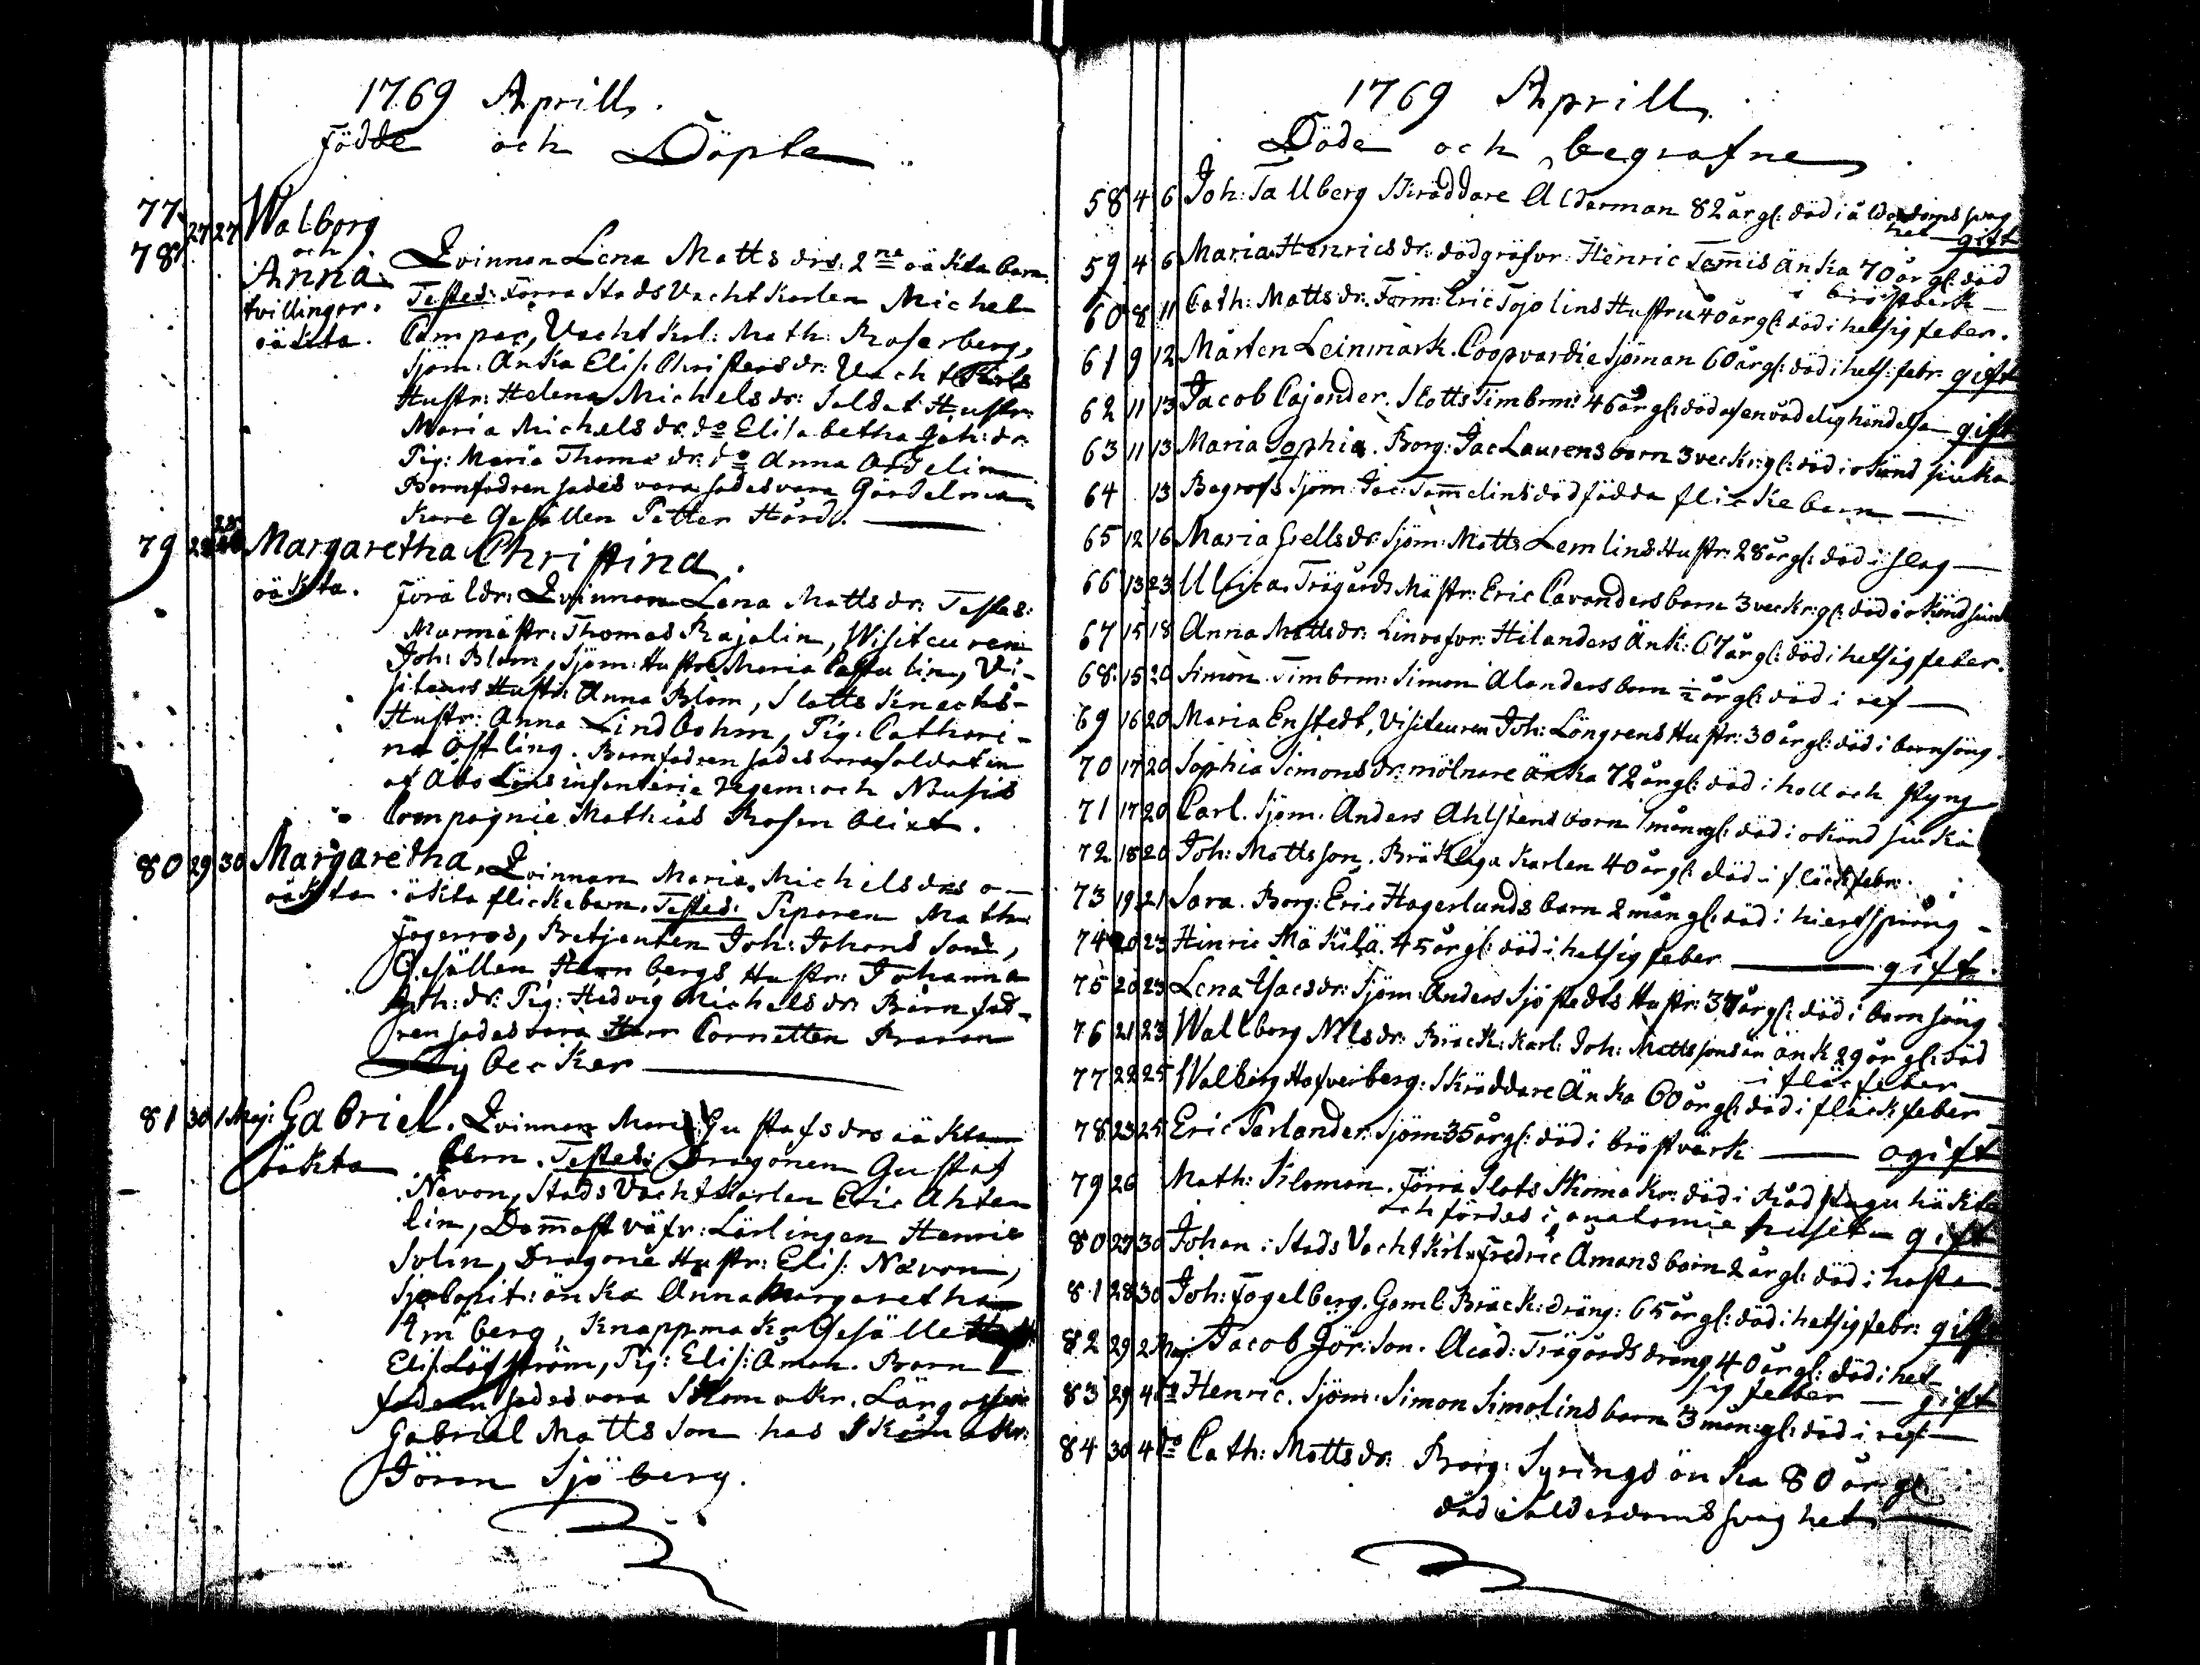 1769 Aprill.
Födde och Döpte
77 27 27 Walborg
78 och
Anna
tvillingar.
oäkta.
Qvinnan Lena Matts drs: 2ne oäkta barn.
Testes: Förra Stads Vacht Karlen Michel
Vacht Karl: Math: Roserberg,
Sjöm: Änka Elis: Christersdr: Vacht Karls
Hustr: Helena Michelsdr: Soldat Hustr:
Maria Michelsdr: do Elisabetha Joh:dr:
Pig: Maria Thomædr: do Anna
Barnfadren sades vara sades vara Gördelma-
kare Gesällen Petter Hård.
79 28 Margaretha Christina.
oäkta. Föräldr: Qvinnan Lena Mattsdr: Testes:
Murmästr: Thomas Rajalin, Visiteuren
Joh: Blom, Sjöm: Hustr: Maria Castulin, Vi-
siteurs Hustr: Anna Blom, Slotts Knechts-
Hustr: Anna Lindbohm, Pig: Cathari-
na Östling. Barnfadren sades vara Soldaten
af Åbo Läns infanterie regem: och Nousis
Compagnie Mathias Rosenblixt.
80 29 30 Margaretha. Qvinnan Maria Michelsdrs o-
oäkta äkta flickebarn. Testes: Math:
Betjenten Joh: Johans Son,
Gesällen bergs Hustr: Johanna
Joh:dr: Pig: Hedvig Michelsdr: Barnfad-
ren sades vara Herr Cornetten Baron
Lybecker
81 30 1 Maj: Gabriel. Qvinnan Mar: Gustafsdrs oäkta
oäkta barn. Testes: Dragonen Gustaf
Nævon, Stads Vacht Karlen Eric Ahte-
lin, Dammast väfv: Lärlingen Henric
Solin, Dragone Hustr: Elis: Nævon,
änka Anna Margaretha
berg, Knappmakr Gesälle
Elis: Löfström, Pig: Elis: Åman. Barn
fadern sades vara Skomakr. Lärgossen
Gabriel Matts Son hos Skomakr:
Jöran Sjöberg.
1769 Aprill.
Döde och begrafne
58 4 6 Joh: Tallberg Skräddare Ålderman 82 år gl: död i ålderdoms svag
het gift
59 4 6 Maria Henricsdr: dödgräfvr: Henric Tammis änka 70 år gl: död
i bröstverk
60 8 11 Cath: Mattsdr: Farm: Eric Tojolins Hustru 40 år gl: död i hetsig feber.
61 9 12 Mårten Leinmark. Coopvardie Sjöman 60 år gl: död i hets: febr: gift
62 11 13 Jacob Cajander. Slotts Timbrm: 46 år gl: död af en vådelig händelse gift
63 11 13 Maria Sophia. Borg: Jac Laurens barn 3 veckr: gl: död i okänd siuka
64 13 Begrofs Sjöm: Jac: Tammelins dödfödda flickebarn
65 12 16 Maria Grellsdr: Sjöm: Matts Lemlins Hustr: 28 år gl: död i slag
66 13 23 Ulrica. Trägårds Mästr: Eric Cavanders barn 3 veckr: gl: död i okänd siuk
67 15 18 Anna Mattsdr: Linväfvr: Hilanders Änk: 67 år gl: död i hetsig feber.
68 15 20 Simon. Timbrm: Simon Alanders barn ½ år gl: död i ref
69 16 20 Maria Enstedt, Visiteuren Joh: Löngrens Hustr: 30 år gl: död i barnsäng.
70 17 20 Sophia Simonsdr: mölnare änka 72 år gl: död i håll och styng
71 17 20 Carl. Sjöm: Anders Ahlstens barn 1 mån: gl: död i okänd siuka
72 18 20 Joh: Mattsson. Bräkliga Karlen 40 år gl: död i fläckfebr:
73 19 21 Sara. Borg: Eric Hagerlunds barn 2 mån gl: död i hiertsprång
74 20 23 Hinric Mäkilä. 45 år gl: död i hetsig feber gift.
75 20 23 Lena Isacsdr: Sjöm: Anders Sjöstedts Hustr: 37 år gl: död i barnsäng
76 21 23 Wallborg Nilsdr: Bräck: Karl: Joh: Mattssons änk 29 år gl: död
i fläcfeber
77 22 25 Walborg Hafverberg: Skräddare Änka 60 år gl: död i fläckfeber
78 23 25 Eric Parlander: Sjöm 35 år gl: död i bröstverk ogift
79 26 Math: Kloman. Förra Slots Skomakr: död i Rådstugu häkte
och fördes i anatomie huset gift
80 27 30 Johan: Stads Vacht Karl: Fredric Åmans barn 2 år gl: död i hosta
81 28 30 Joh: Fogelberg. Gaml: Bräck: dräng: 65 år gl: död i hetsig febr: gift
82 29 2 Maj Jacob Jör:son. Acad: Trägårds dräng 40 år gl: död i het-
sig feber gift
83 29 4 do Henric. Sjöm: Simon Simolins barn 3 mån: gl: död i ref
84 30 4 do Cath: Mattsdr: Borg: Syrings änka 80 år gl:
död i ålderdoms svaghet